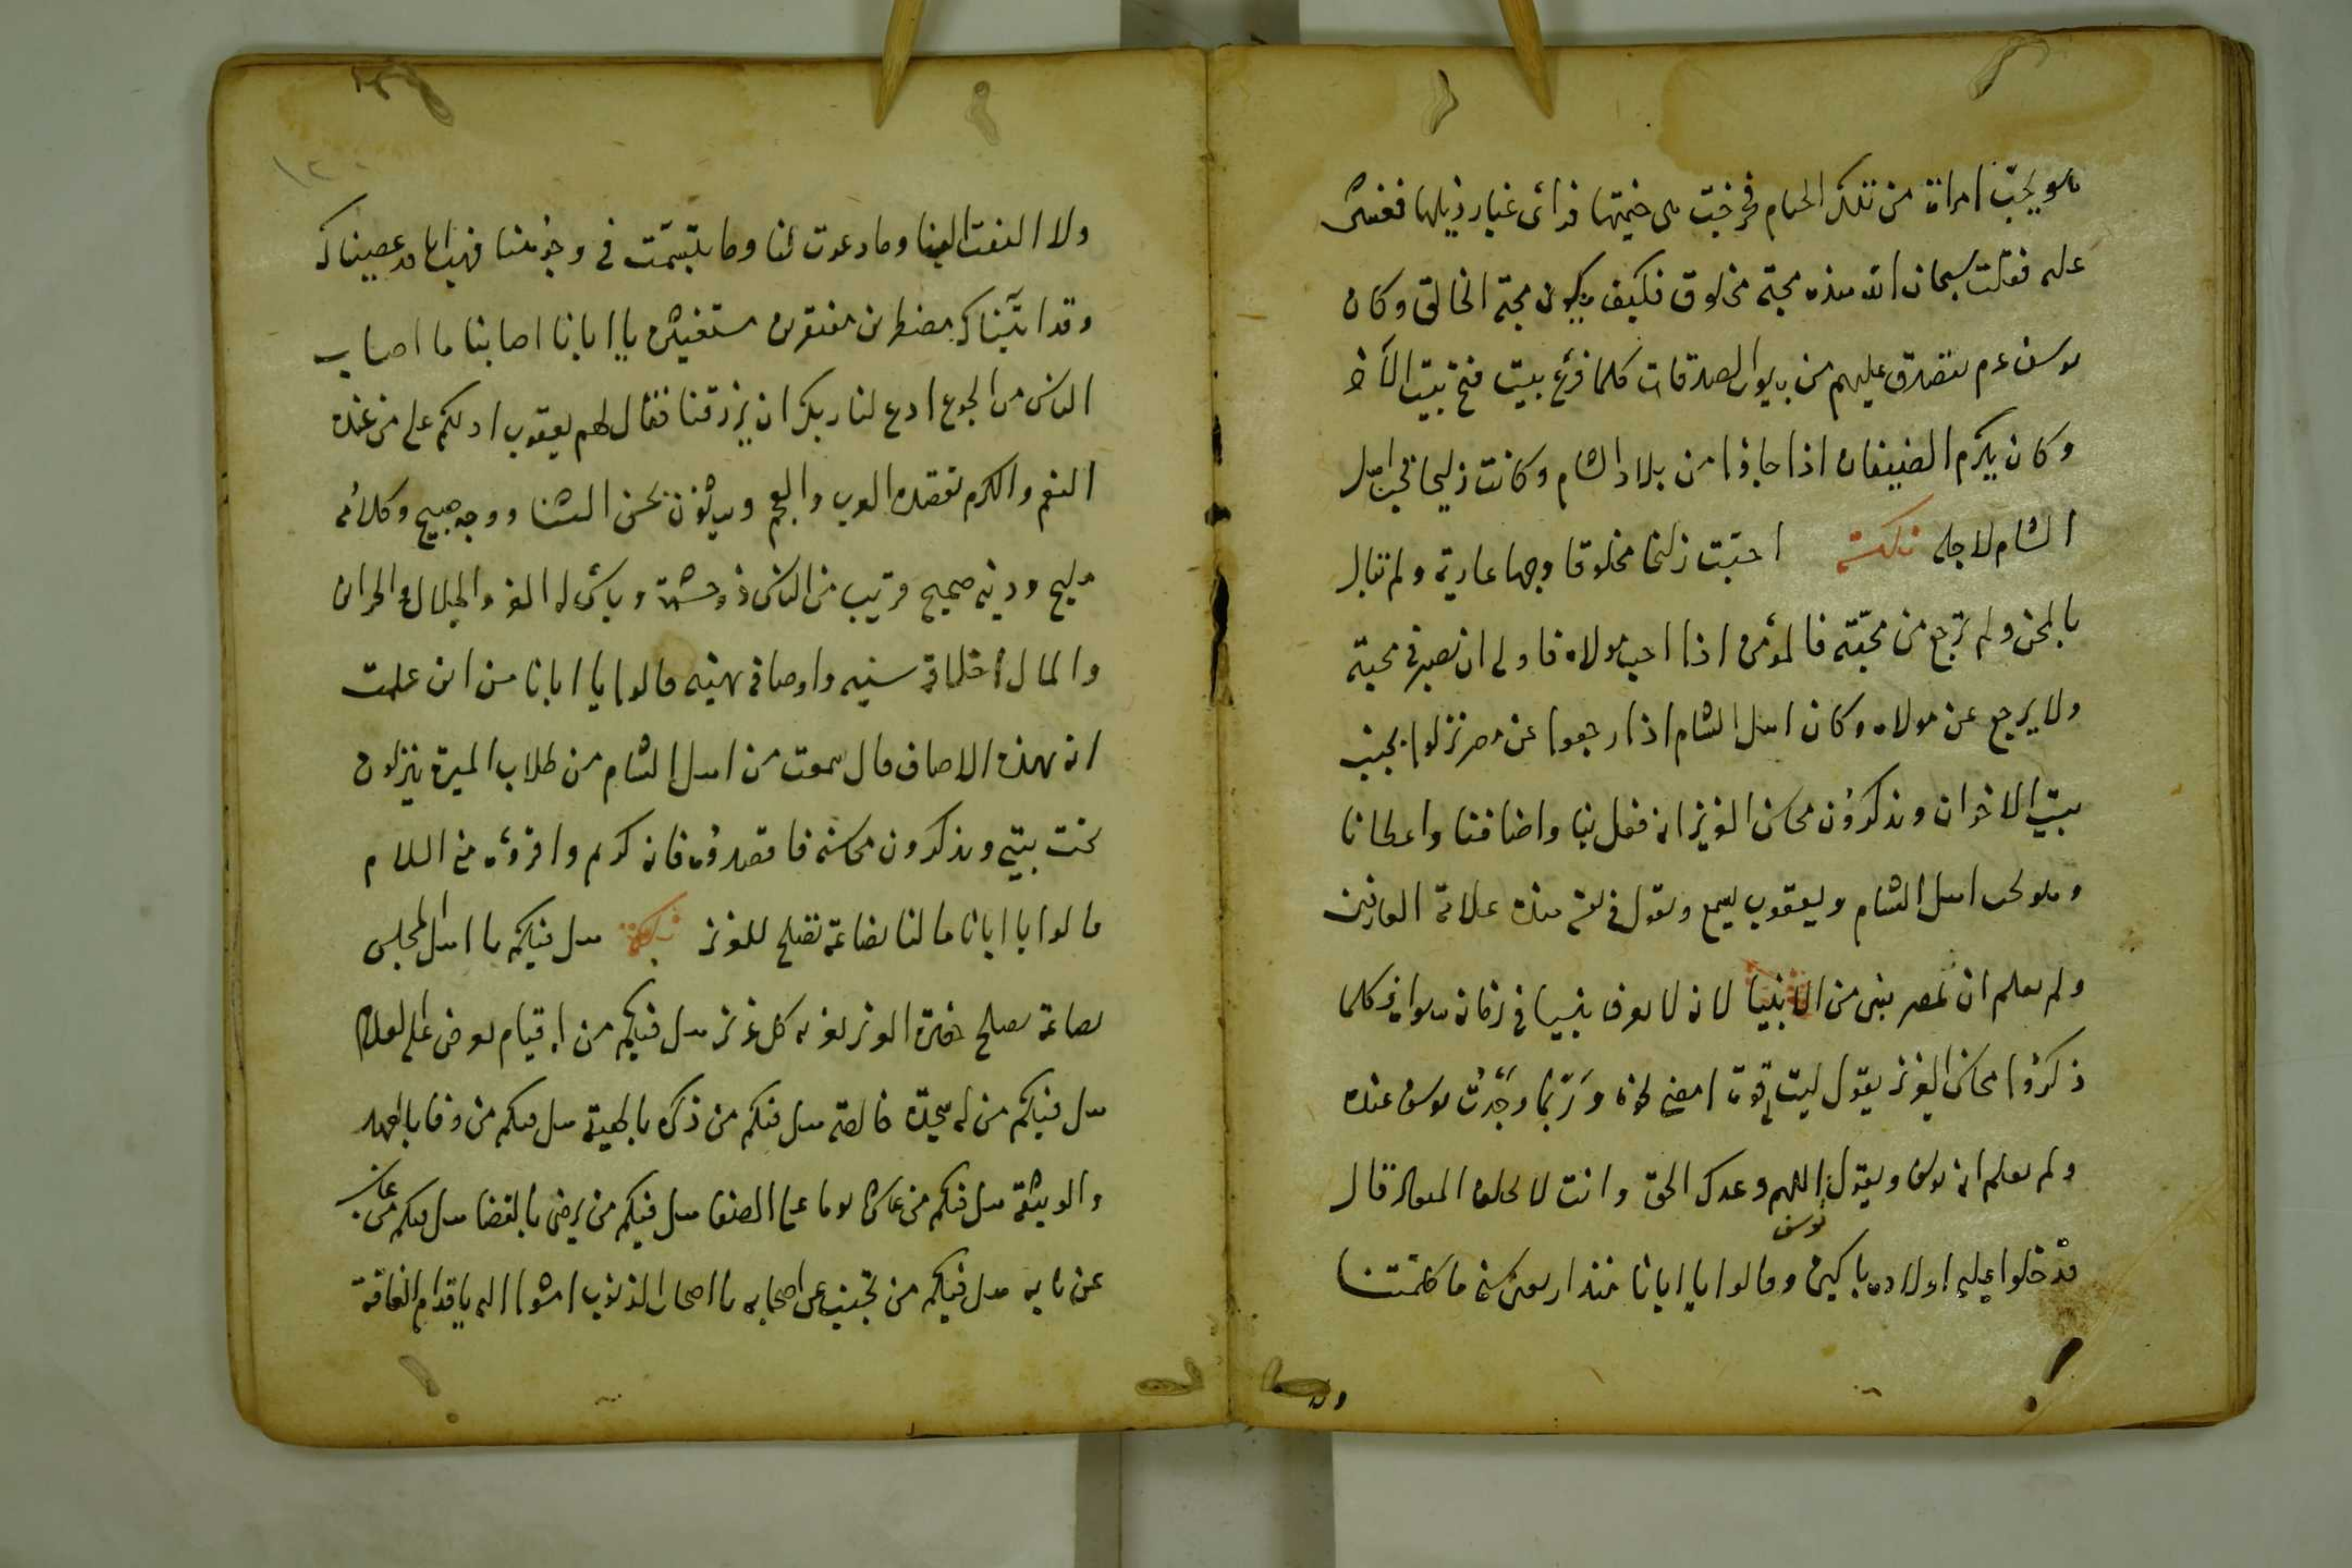 هو يحبّ امراة من تلك الخيام فخرجت من خيمتها فرأى غبار ذيلها فغشى
عليه فقلت سبحان الله هذه محبّة مخلوق فكيف يكون محبّة الخالق وكان
يوسف عم يتصدق عليهم من بيوت الصدقات كلما فرغ بيت فتح بيت الآخر
وكان يكرم الضيفان اذا جاؤا من بلاد الشام وكانت زليخا تحبّ اهل
الشام لاجله نكتة احبّت زليخا مخلوقا وجها عارية ولم تبال
بالمحن ولم ترجع من محبّته فالمؤمن اذا احب مولاه فاولى ان يصبر في محبته
ولا يرجع عن مولاه وكان اهل الشام اذا رجعوا عن مصر نزلوا بجنب
بيت الاخوان ويذكرون محاسن العزيز انه فعل بنا واضافنا واعطانا
اهل الشام ويعقوب يسمع ويقول في نفسه هذه علامة العارفين
ولم يعلم ان بمصر نبى من الانبيا لانه لا يعرف نبيا في زمانه سواه فكلما
ذكروا محاسن العزيز يقول ليت لي قوة امضى نحوه ورَبّما وجدتُ يوسف عنده
ولم يعلم انه يوسف ويقول اللهم وعدك الحق وانت لا تخلف الميعاد قال
يوسف
فدخلوا عليه اولاده باكين وقالوا يا ابانا منذ اربعين سنة ما كلمتنا
ولا
ولا التفت الينا وما دعوت لنا وما تبسّمت في وجوهنا فهب انا قد عصيناك
وقد اتيناك مضطرين مفتقرين مستغيثين يا ابانا اصابنا ما اصاب
الناس من الجوع ادع لنا ربك ان يرزقنا فقال لهم يعقوب ادلكم على من عنده
النعم والكرم تقصده العرب والعجم ويثنون بحسن الثنا ووجه صبيح وكلامه
مليح ودينه صحيح قريب من الناس ذو حشمة وبأس له العز والجلال والخزائن
والمال اخلاق سنيه واوصاف بهيه قالوا يا ابانا من اين علمت
انه بهذه الاصاف قال سمعت من اهل الشام من طلاب الميرة ينزلون
تحت بيتي ويذكرون محاسنه فاقصدوه فانه كريم واقرؤه من السلام
قالوا يا ابانا ما لنا بضاعة تصلح للعزيز نكتة هل فيكم يا اهل المجلس
بضاعة تصلح حضرة العزيز يعز به كل عزيز هل فيكم من اقيام يعرض على العلام
هل فيكم من له سجدة خالصة هل فيكم من ذكره بالهيبة هل فيكم من وفا بالعهد
والوثيقة هل فيكم من عاش يوما على الصفا هل فيكم من يرضى بالقضا هل فيكم من غاب
عن بابه هل فيكم من تجنب عن اصحابه يا اصحاب الذنوب امشوا اليه باقدام الفاقة